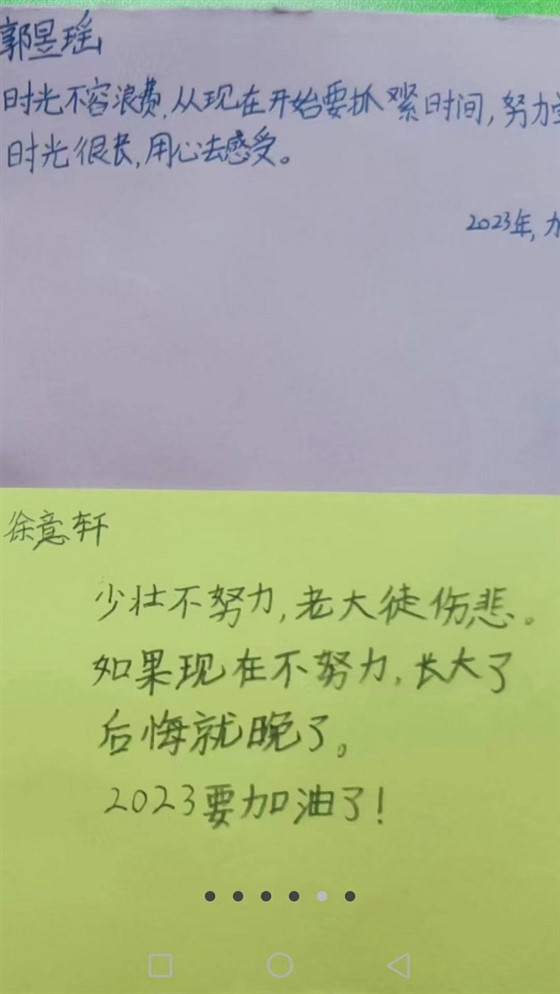 郭昱瑶
时光不容浪费,从现在开始要抓紧时间,努力
时光很长,用心去感受。
2023年,
徐意轩
少壮不努力,老大徒伤悲。
如果现在不努力,长大了
后悔就晚了。
2023要加油了!